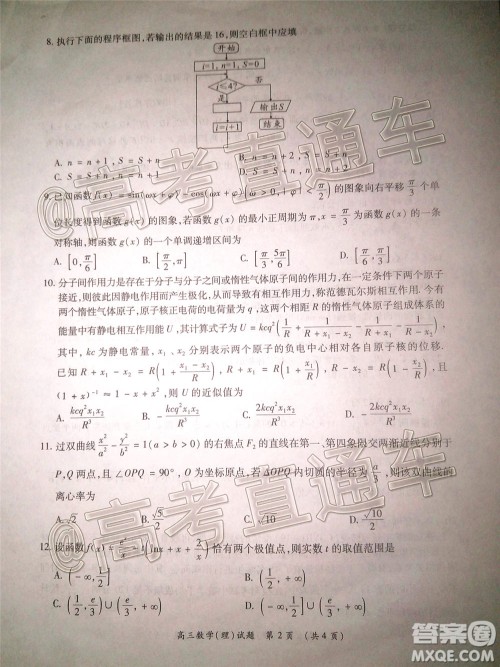 8. 执行下面的程序框图,若输出的结果是16,则空白框中应填
开始
i=1, n=1, S=0
i≤4?
输出S
i=i+1
结束
A. n=n+1, S=S+n B. n=n+2, S=S+n
C. S=S+n, n=n+1 D. S=S+n, n=n+2
9. 已知函数f(x)=sin(ωx+φ)-cos(ωx+φ)(ω>0, |φ|<π/2) 的图象向右平移 π/3 个单
位长度得到函数g(x)的图象,若函数g(x)的最小正周期为π,x=π/3为函数g(x)的一条
对称轴,则函数g(x)的一个单调递增区间为
A. [0, π/6] B. [π/2, π] C. [π/3, 5π/6] D. [π/6, π/3]
10. 分子间作用力是存在于分子与分子之间或惰性气体原子间的作用力,在一定条件下两个原子
接近,则彼此因静电作用而产生极化,从而导致有相互作用力,称范德瓦尔斯相互作用.今有
两个惰性气体原子,原子核正电荷的电荷量为q,这两个相距R的惰性气体原子组成体系的
能量中有静电相互作用能U,其计算式子为U=kcq²(1/R+1/(R+x₁-x₂)-1/(R+x₁)-1/(R-x₂)),
其中,kc为静电常量,x₁、x₂分别表示两个原子的负电中心相对各自原子核的位移.
已知R+x₁-x₂=R(1+(x₁-x₂)/R), R+x₁=R(1+x₁/R), R-x₂=R(1-x₂/R),且
(1+x)⁻¹≈1-x+x²,则U的近似值为
A. kcq²x₁x₂/R³ B. -kcq²x₁x₂/R³ C. 2kcq²x₁x₂/R³ D. -2kcq²x₁x₂/R³
11. 过双曲线x²/a²-y²/b²=1(a>b>0)的右焦点F₂的直线在第一、第四象限交两渐近线分别于
P,Q两点,且∠OPQ=90°,O为坐标原点,若△OPQ内切圆的半径为a/3,则该双曲线的
离心率为
A. √2 B. C. √10 D. √10/2
12. 设函数f(x)= (lnx+x+2/x)恰有两个极值点,则实数t的取值范围是
A. B.
C. (1/2, e/3)∪(e/3, +∞) D.
高三数学(理)试题 第2页 (共4页)
@高考直通车
@高考直通车
答案圈
MXQE.COM